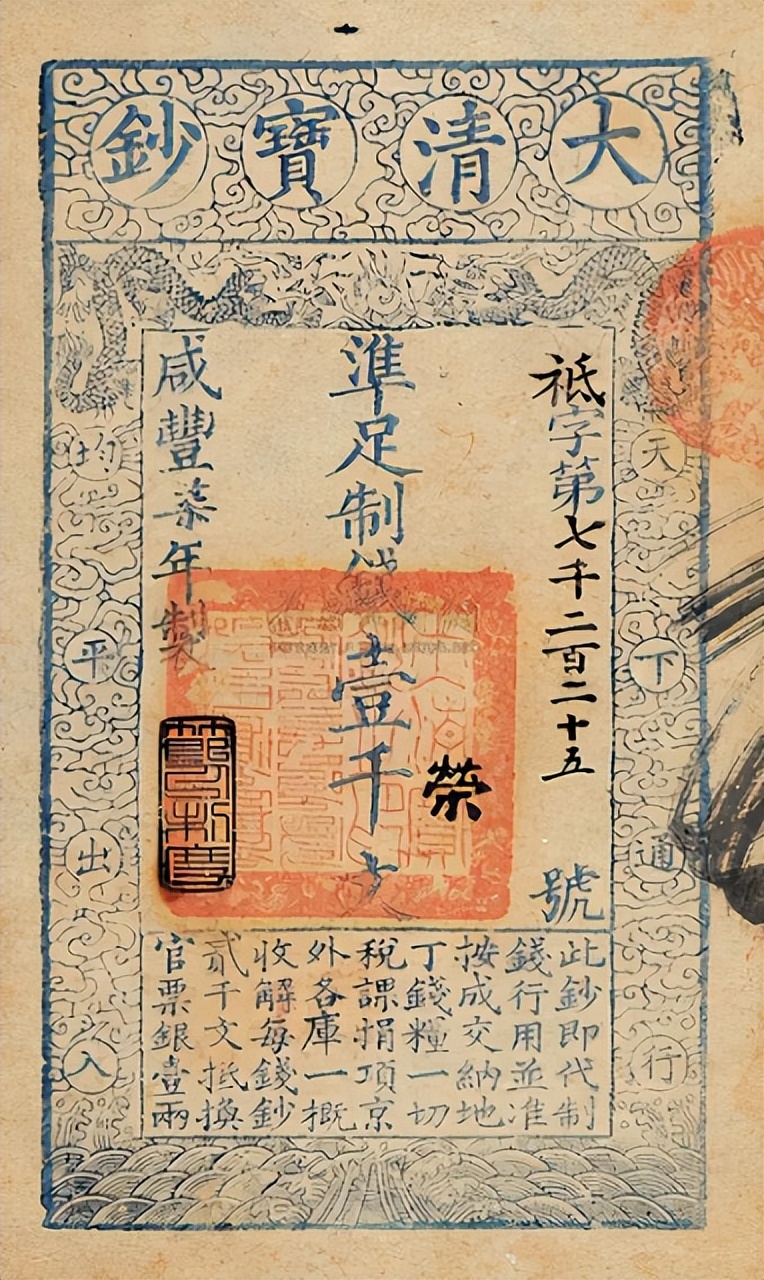 大清寶鈔
天下通行
均平出入
祇字第七千二百二十五號
準足制錢壹千文
榮
咸豐柒年製
此鈔即代制
錢行用並准
按成交納地
丁錢糧一切
稅課捐項京
外各庫一概
收解每錢鈔
貳千文抵換
官票銀壹兩